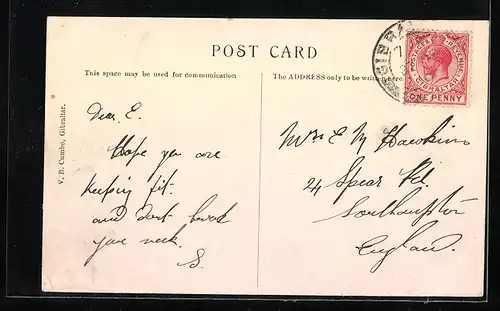 POST CARD
This space may be used for communication
The ADDRESS only to be written here
V. B. Cumbo, Gibraltar.
Dear E.
Hope you are
keeping fit.
and dont break
your neck.
S.
Mrs E M Hawkins
24 Spear Rd.
Southampton
England.
GIBRA
POSTAGE & REVENUE
GIBRALTAR
ONE PENNY